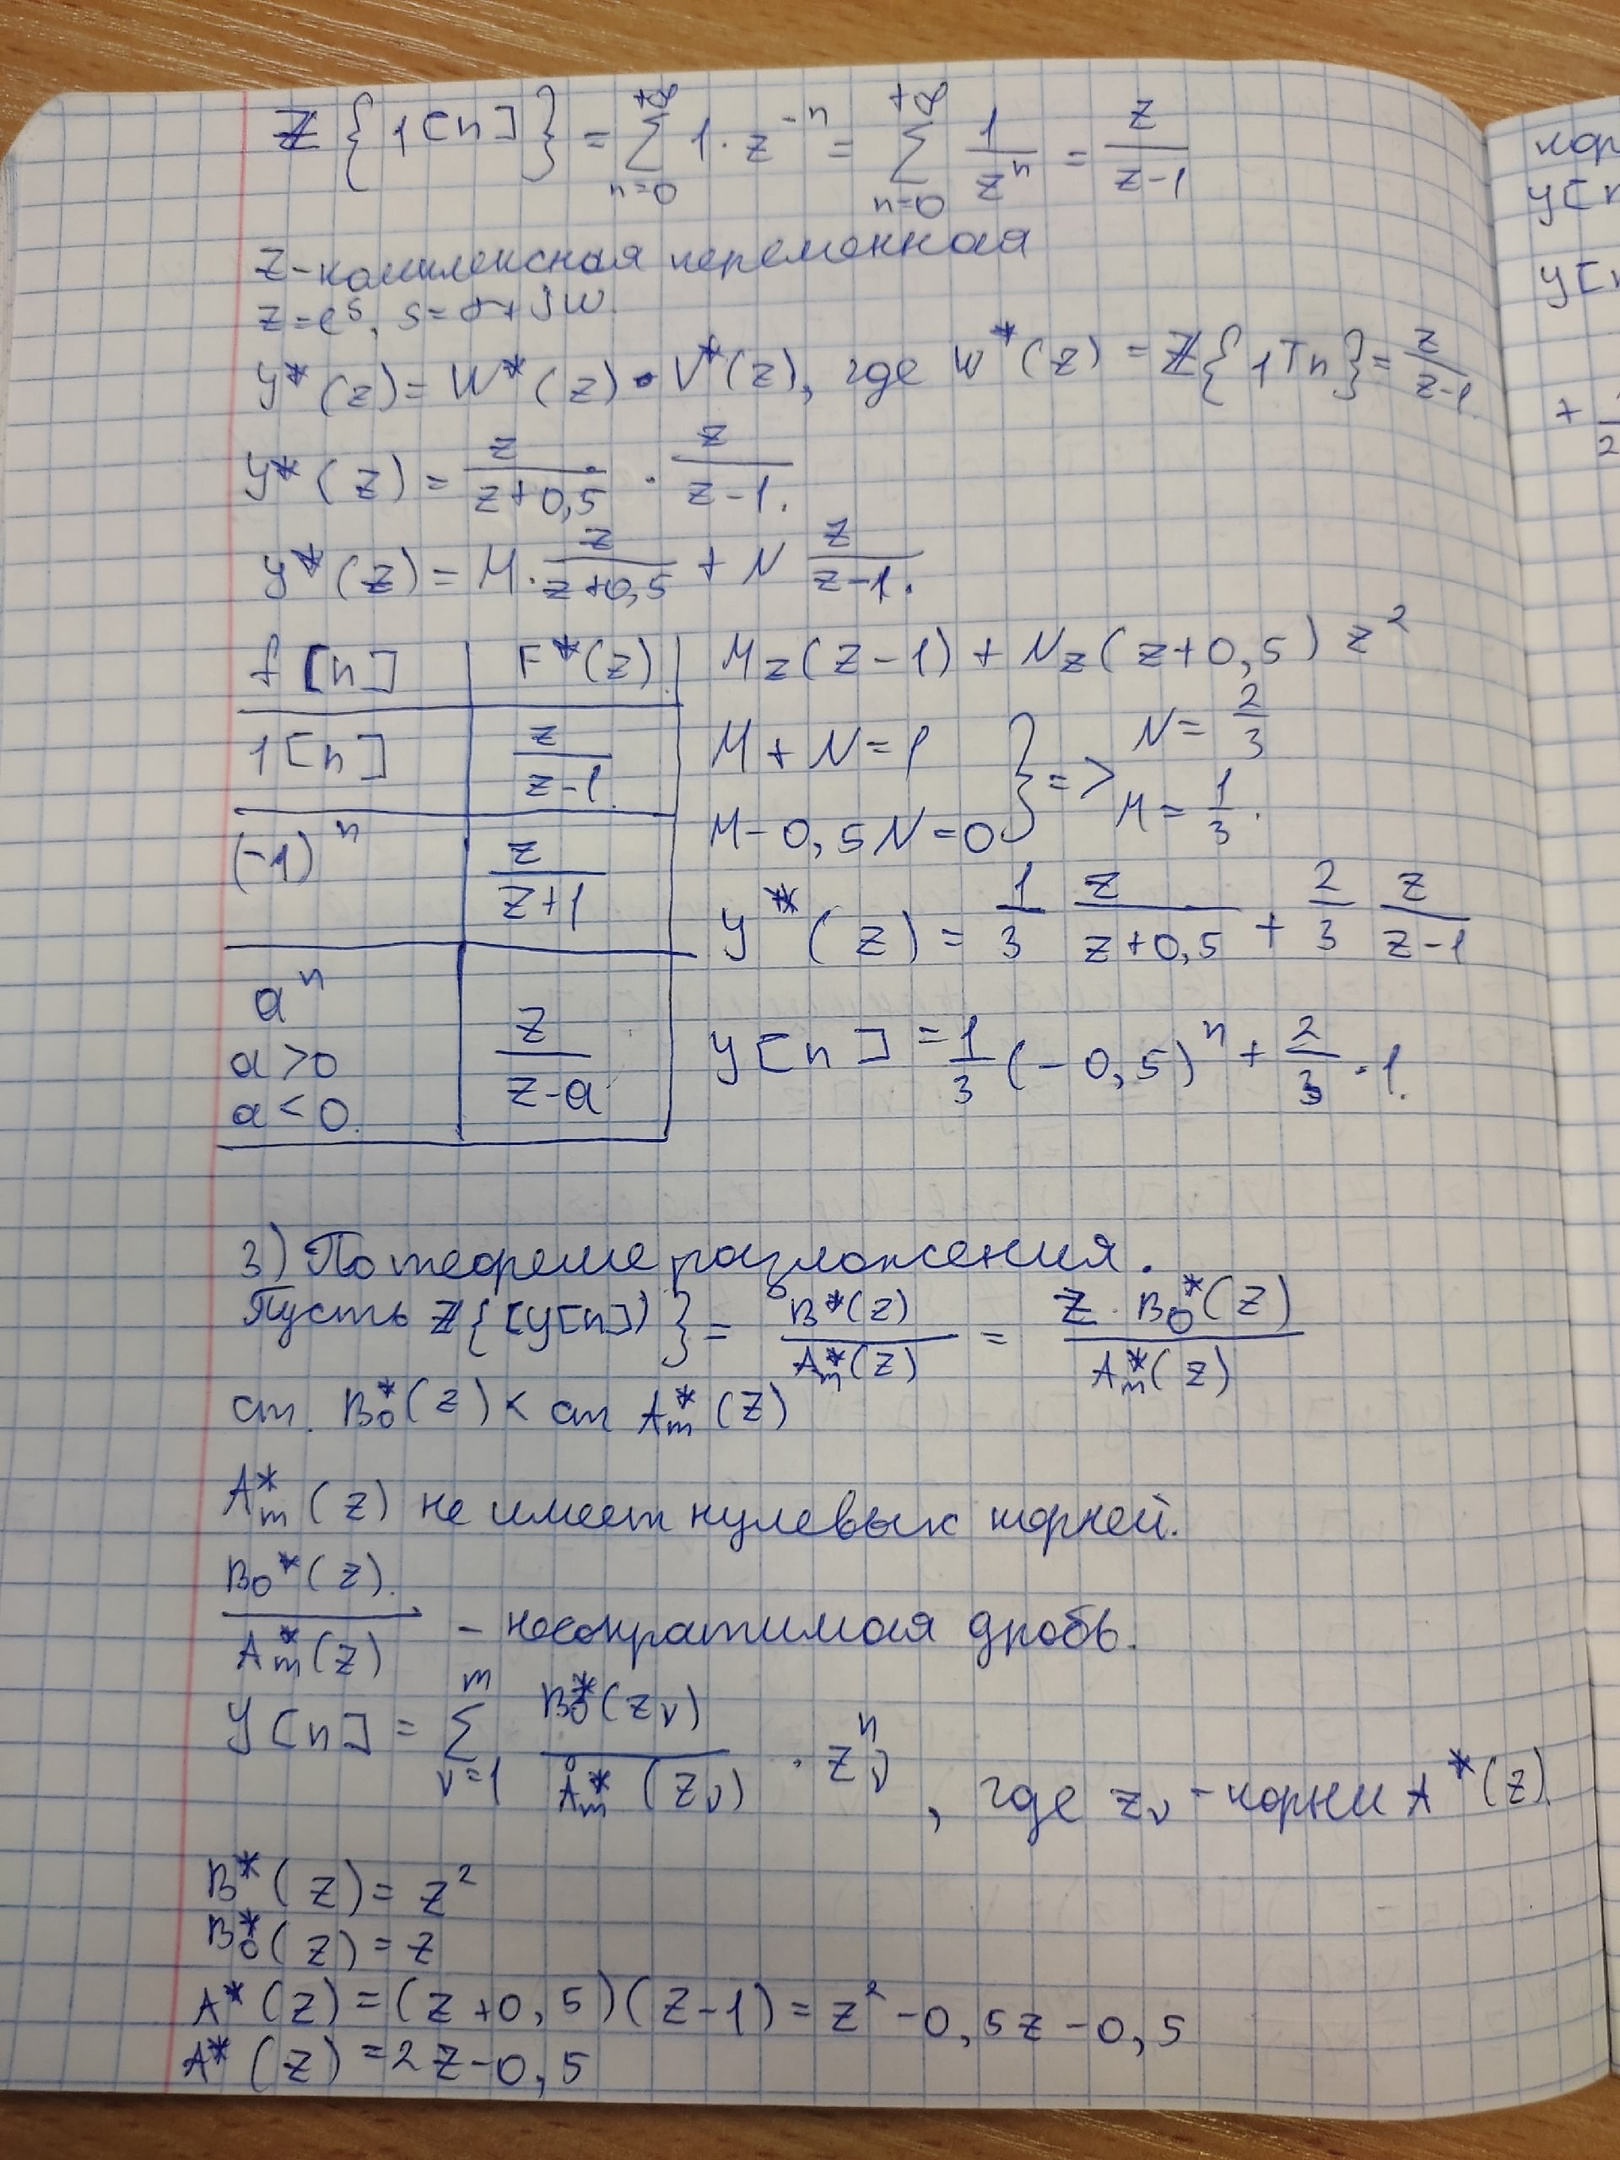 Z{1[n]} = Σ_{n=0}^{+∞} 1·z^{-n} = Σ_{n=0}^{+∞} 1/z^n = z/(z-1)
z-комплексная переменная
z=e^s, s=σ+jw.
y*(z) = W*(z)·V*(z), где W*(z) = Z{1[n]} = z/(z-1)
y*(z) = z/(z+0,5) · z/(z-1).
y*(z) = M·z/(z+0,5) + N z/(z-1).
f[n] | F*(z)
1[n] | z/(z-1)
(-1)^n | z/(z+1)
a^n a>0 a<0. | z/(z-a)
Mz(z-1) + Nz(z+0,5) z^2
M+N=1
M-0,5N=0 } => N=2/3 M=1/3.
y*(z) = 1/3 z/(z+0,5) + 2/3 z/(z-1)
y[n] = 1/3 (-0,5)^n + 2/3 · 1.
3) По теореме разложения.
Пусть Z{[y[n])} = B*(z)/A_m*(z) = z·B_0*(z)/A_m*(z)
ст. B_0*(z) < ст A_m*(z)
A_m*(z) не имеет нулевых корней.
B_0*(z)./A_m*(z) - несократимая дробь.
y[n] = Σ_{ν=1}^{m} B_0*(z_ν)/Ȧ_m*(z_ν) · z_ν^n, где z_ν - корни A*(z).
B*(z) = z^2
B_0*(z) = z
A*(z) = (z+0,5)(z-1) = z^2-0,5z-0,5
A*(z) = 2z-0,5
кор
y[n
y[n
+
2